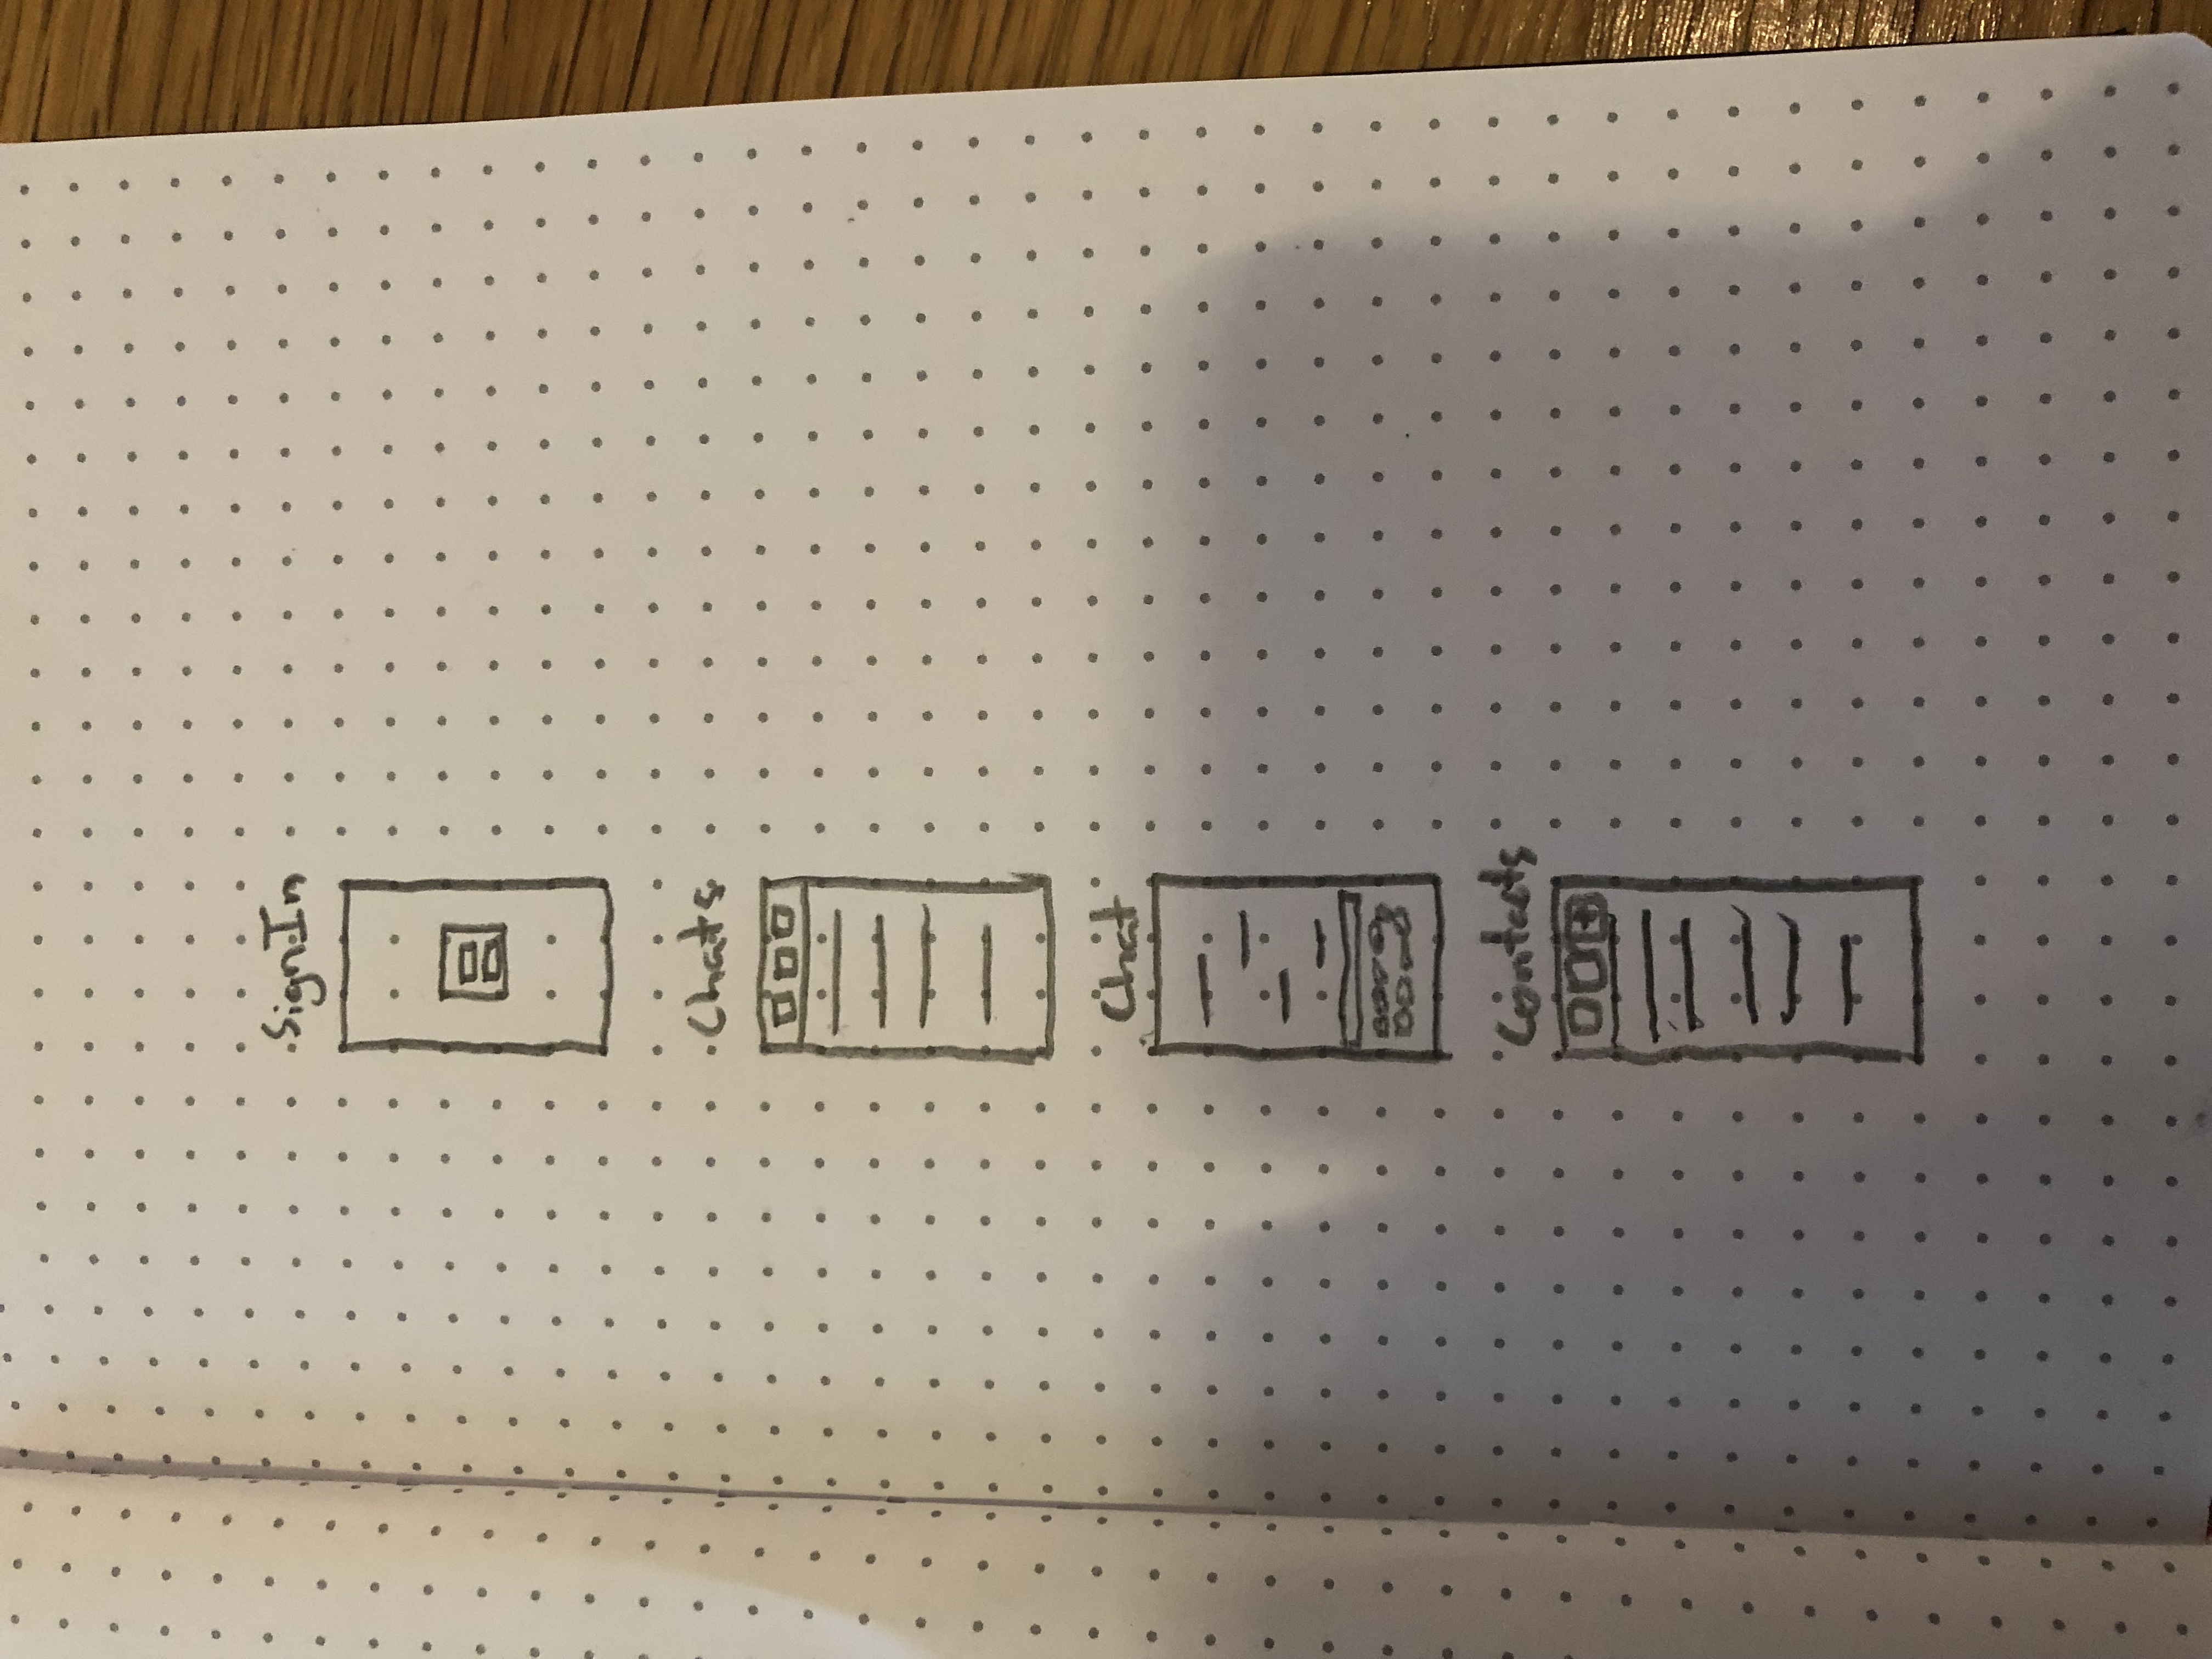 Sign In
Chats
Chat
Contacts
+